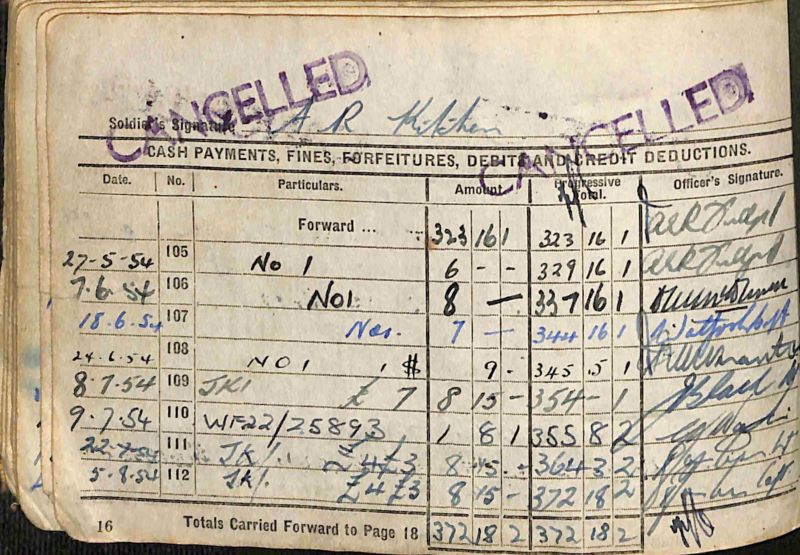 CANCELLED CANCELLED
Soldier's Signature A R Kitchen
CASH PAYMENTS, FINES, FORFEITURES, DEBIT AND CREDIT DEDUCTIONS.
Date. No. Particulars. Amount Progressive Total. Officer's Signature.
Forward ... 323 16 1 323 16 1
27-5-54 105 No 1 6 - - 329 16 1
7.6.54 106 No1 8 — 337 16 1
18.6.54 107 7 — 344 16 1
24.6.54 108 NO 1 1 $ 9 - 345 .5 1
8.7.54 109 JK1 £ 7 8 15 - 354 - 1 Black
9.7.54 110 WF22/25893 1 8 1 355 8 2
22.7.54 111 JK1. £4 £3 8 15 - 364 3 2
5.8.54 112 JK1. £4 £3 8 15 - 372 18 2
16 Totals Carried Forward to Page 18 372 18 2 372 18 2